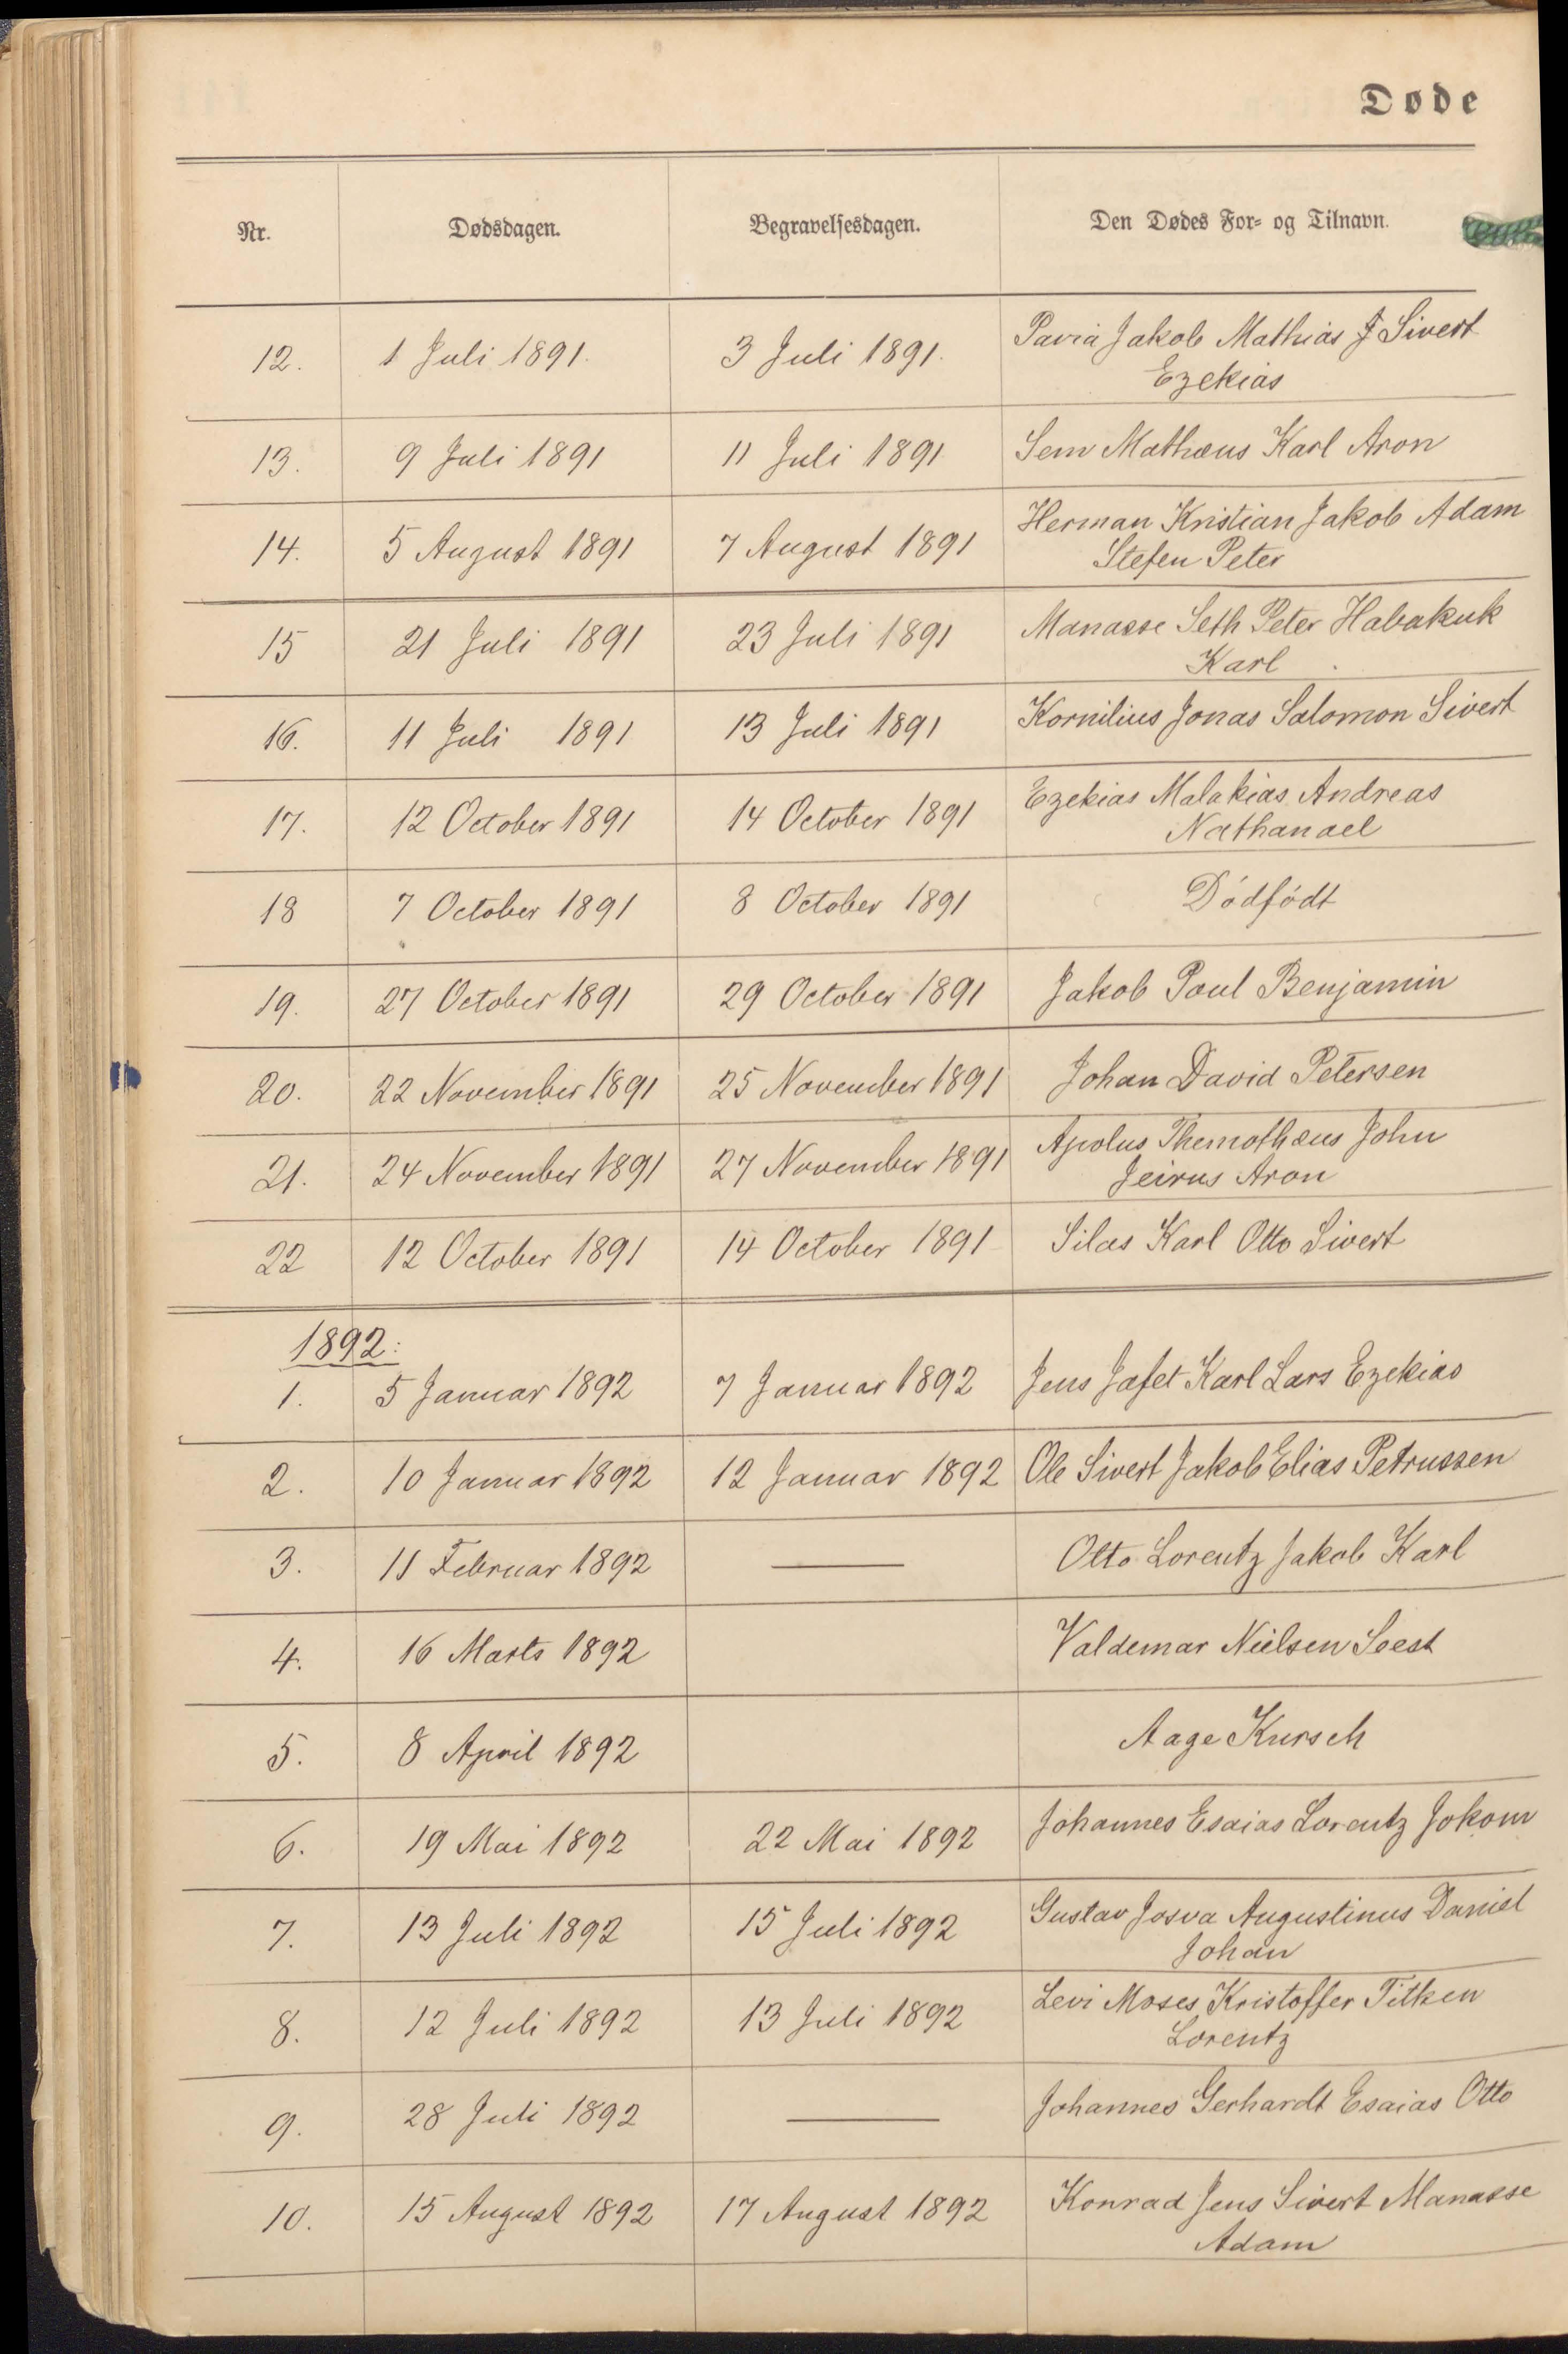 Døde
Nr. Dødsdagen. Begravelsesdagen. Den Dødes For= og Tilnavn.
12. 1 Juli 1891. 3 Juli 1891. Pavia Jakob Mathias J Sivert
Ezekias
13. 9 Juli 1891 11 Juli 1891 Sem Mathæus Karl Aron
14. 5 August 1891 7 August 1891 Herman Kristian Jakob Adam
Stefen Peter
15 21 Juli 1891 23 Juli 1891 Manasse Seth Peter Habakuk
Karl
16. 11 Juli 1891 13 Juli 1891 Kornilius Jonas Salomon Sivert
17. 12 October 1891 14 October 1891 Ezekias Malakias Andreas
Nathanael
18 7 October 1891 8 October 1891 Dødfødt
19. 27 October 1891 29 October 1891 Jakob Poul Benjamin
20. 22 November 1891 25 November 1891 Johan David Petersen
21. 24 November 1891 27 November 1891 Apolus Themothæus John
Jeirus Aron
22 12 October 1891 14 October 1891 Silas Karl Otto Sivert
1892:
1. 5 Januar 1892 7 Januar 1892 Jens Jafet Karl Lars Ezekias
2. 10 Januar 1892 12 Januar 1892 Ole Sivert Jakob Elias Petrussen
3. 11 Februar 1892 — Otto Lorentz Jakob Karl
4. 16 Marts 1892 Valdemar Nielsen Seest
5. 8 April 1892 Aage Kursch
6. 19 Mai 1892 22 Mai 1892 Johannes Esaias Lorentz Jokom
7. 13 Juli 1892 15 Juli 1892 Gustav Josva Augustinus Daniel
Johan
8. 12 Juli 1892 13 Juli 1892 Levi Moses Kristoffer Titken
Lorentz
9. 28 Juli 1892 — Johannes Gerhardt Esaias Otto
10. 15 August 1892 17 August 1892 Konrad Jens Sivert Manasse
Adam